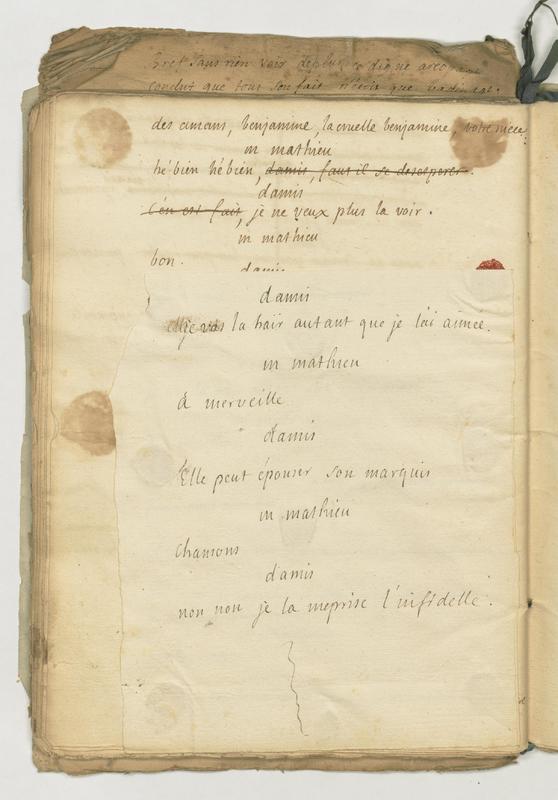 Bref sans rien voir de plus
conclut que tout son fait n'étoit que badinage.
des amans, benjamine, la cruelle benjamine, votre niece.
m mathieu
hé bien hé bien, damis, faut il se desesperer.
damis
c'en est fait, je ne veux plus la voir.
m mathieu
bon.
damis
damis
je vas la haïr autant que je l'ai aimée.
m mathieu
à merveille
damis
Elle peut épouser son marquis
m mathieu
chansons
damis
non non je la meprise l'infidelle.